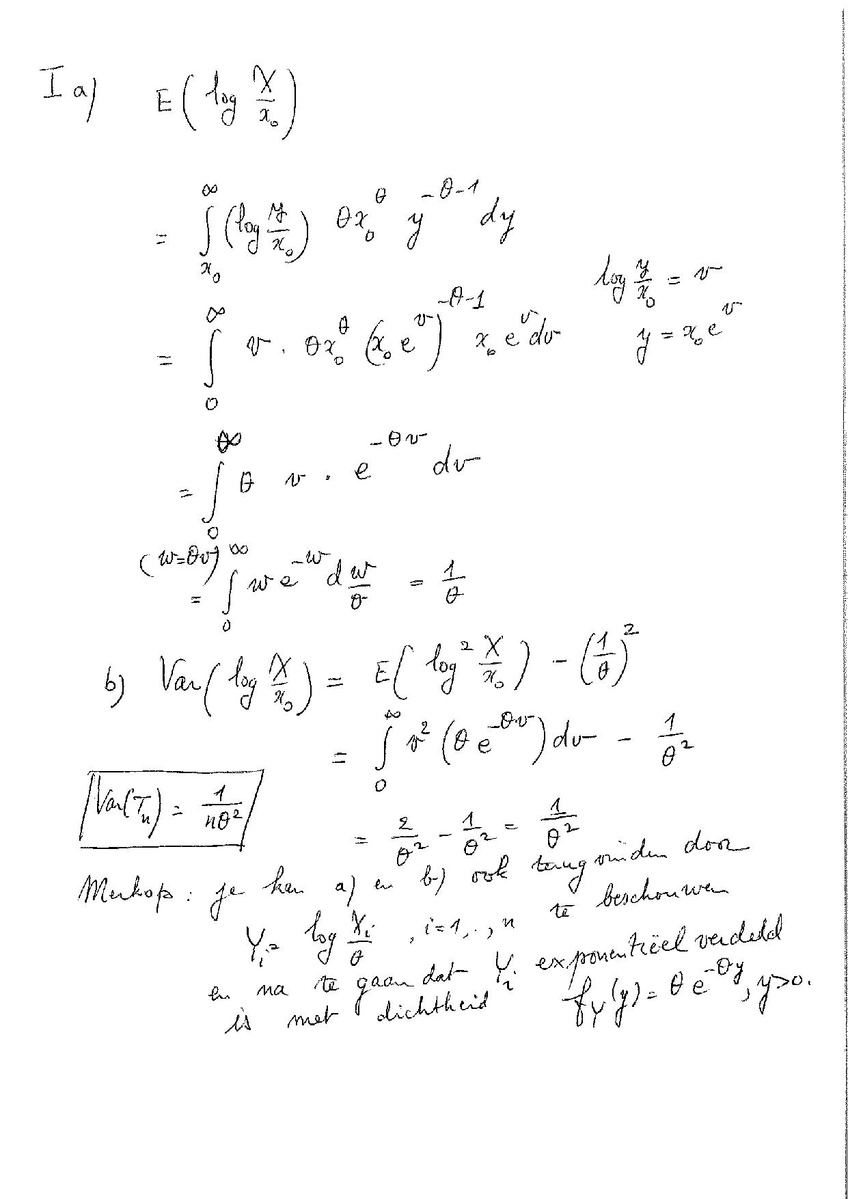 I a) E( log X/x₀ )
= ∫_{x₀}^{∞} (log y/x₀) θx₀^θ y^{-θ-1} dy
log y/x₀ = v
= ∫_0^∞ v . θx₀^θ (x₀ e^v)^{-θ-1} x₀ e^v dv
y = x₀ e^v
= ∫_0^∞ θ v . e^{-θv} dv
(w=θv)
= ∫_0^∞ w e^{-w} d w/θ = 1/θ
b) Var( log X/x₀ ) = E( log² X/x₀ ) - (1/θ)²
= ∫_0^∞ v² (θ e^{-θv}) dv - 1/θ²
Var(Tn) = 1/nθ²
= 2/θ² - 1/θ² = 1/θ²
Merkop : je kan a) en b) ook terugvinden door
Yᵢ= log Xᵢ/θ , i=1,..,n te beschouwen
en na te gaan dat Yᵢ exponentiëel verdeld
is met dichtheid f_Y(y) = θ e^{-θy}, y>0.